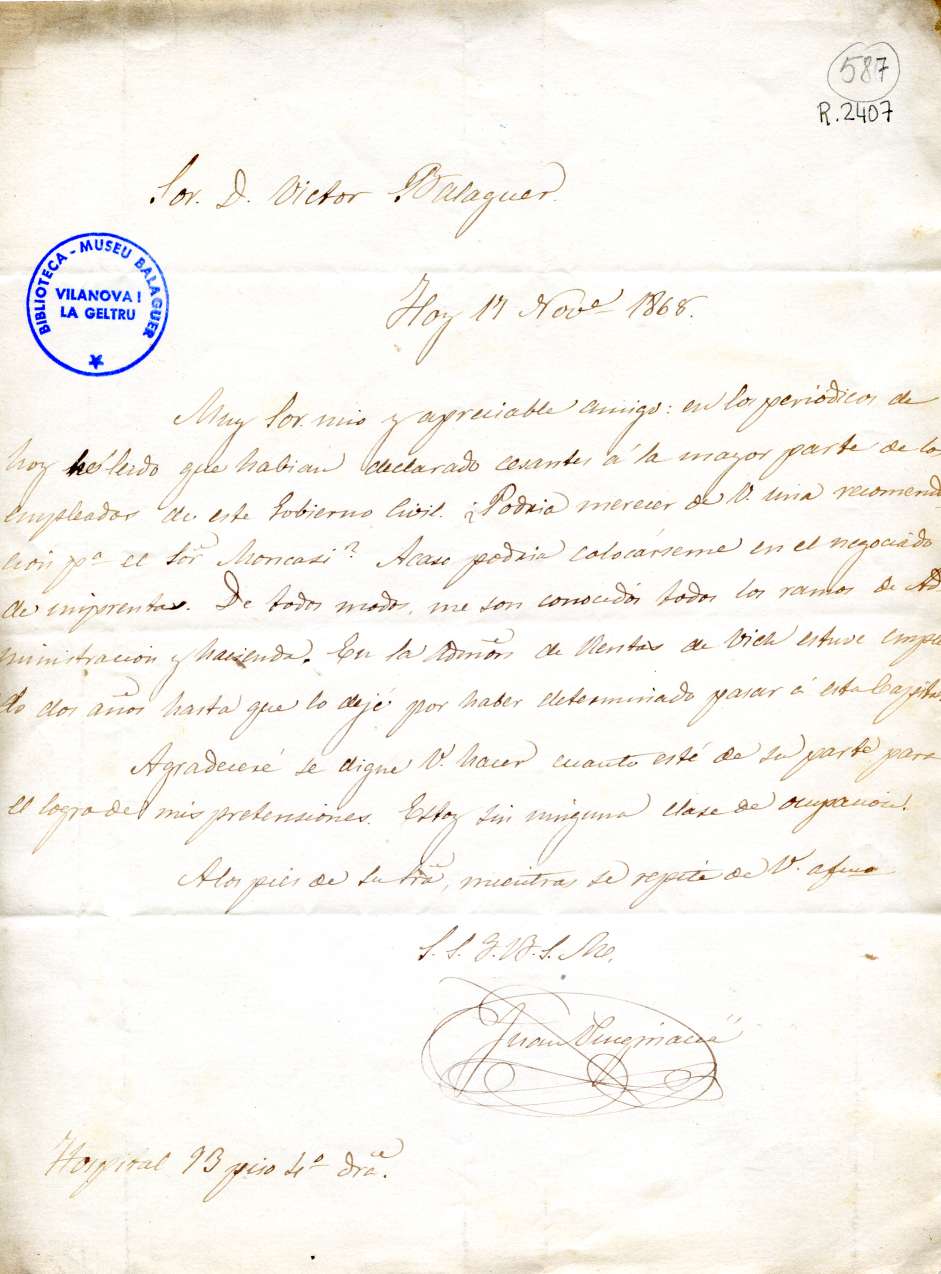 587
R.2407
Sor. D. Victor Balaguer.
BIBLIOTECA - MUSEU BALAGUER
VILANOVA I
LA GELTRU
Hoy 17 Nove. 1868.
Muy Sor. mio y apreciable amigo: en los periódicos de
hoy hé leido que habian declarado cesantes á la mayor parte de los
empleados de este Gobierno Civil. ¿Podria merecer de V. una recomend
cion pa. el Sor. Moncasi? Acaso podria colocárseme en el negociado
de imprentas. De todos modos, me son conocidos todos los ramos de Ad
ministracion y hacienda. En la Admon. de Rentas de Vich estuve emplea
do dos años hasta que lo dejé por haber determinado pasar á esta Capital
Agradeceré se digne V. hacer cuanto esté de su parte para
el logro de mis pretensiones. Estoy sin ninguna clase de ocupacion!
A los pies de su Sra, mientras se repite de V. afmo
S. S. Q. B. S. M.
Juan Puigmacià
Hospital 93 piso 4º dra.